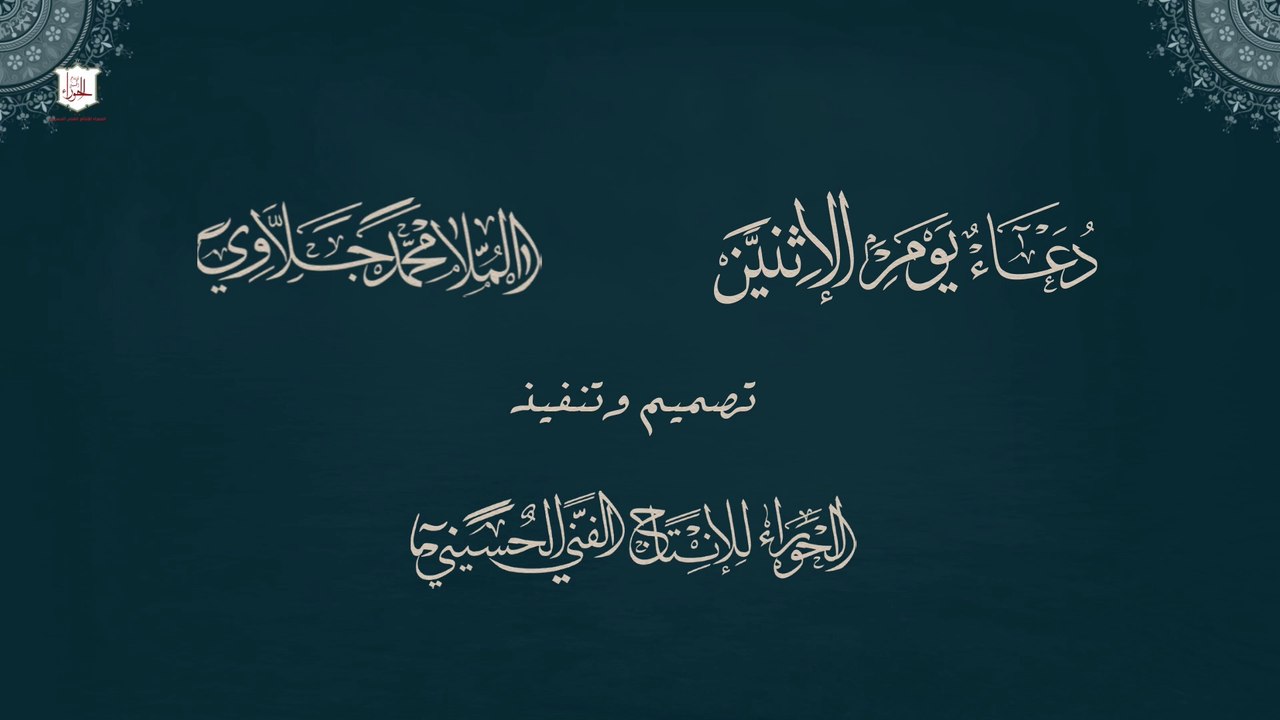 دُعَاءُ يَوْمِ الإِثْنَيْنِ
المُلا مُحَمَّد جَلَاوِي
تصميم وتنفيذ
الحَوْرَاءُ لِلإِنْتَاجِ الفَنِّي الحُسَيْنِي
الحوراء